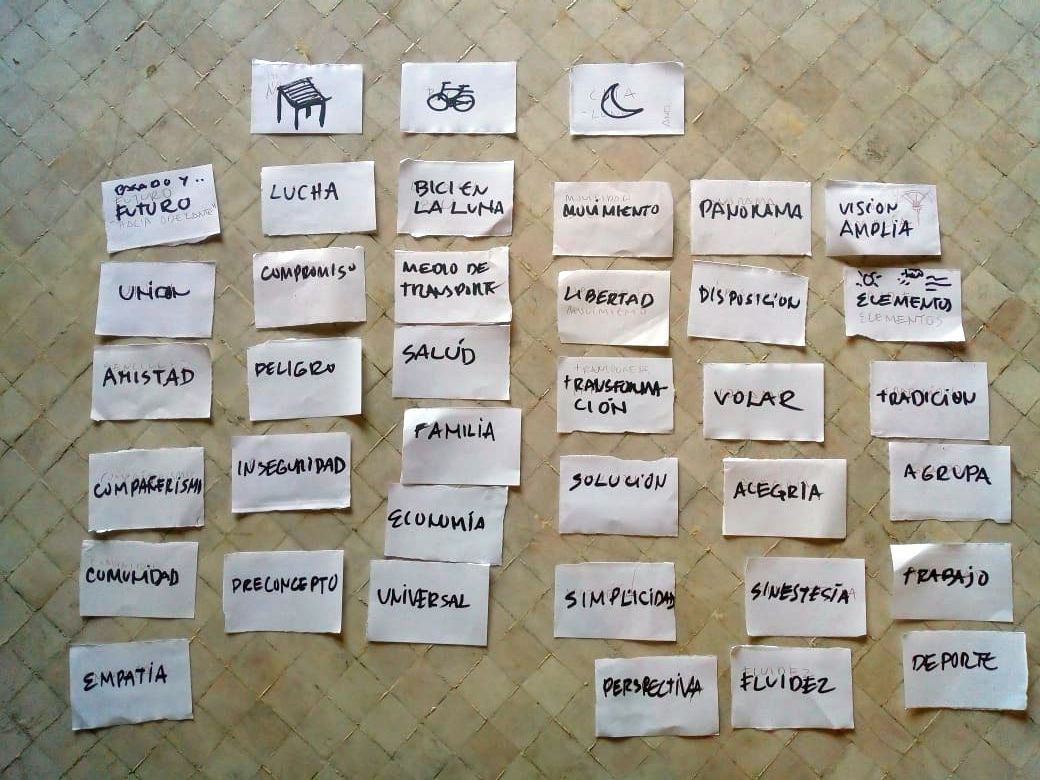 PASADO Y..
FUTURO
LUCHA
BICI EN
LA LUNA
MOVIMIENTO
PANORAMA
VISION
AMPLIA
UNION
COMPROMISO
MEDIO DE
TRANSPORTE
LIBERTAD
DISPOSICION
ELEMENTOS
ELEMENTOS
AMISTAD
PELIGRO
SALUD
TRANSFORMA
CIÓN
VOLAR
TRADICION
COMPAÑERISMO
INSEGURIDAD
FAMILIA
SOLUCIÓN
ALEGRIA
AGRUPA
ECONOMÍA
COMUNIDAD
PRECONCEPTO
UNIVERSAL
SIMPLICIDAD
SINESTESIA
TRABAJO
EMPATÍA
PERSPECTIVA
FLUIDEZ
DEPORTE